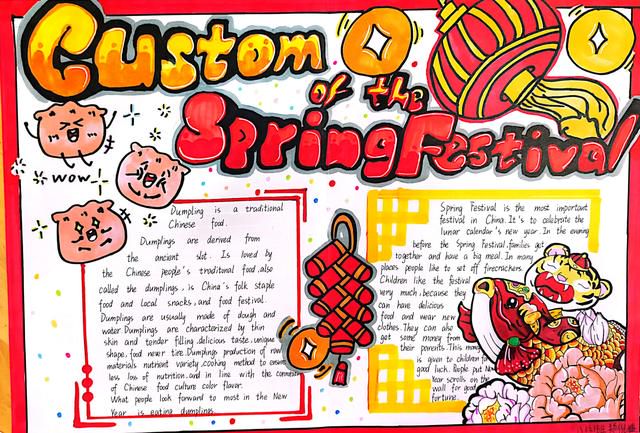 Custom
of the
Spring Festival
wow
Dumpling is a traditional
Chinese food.
Dumplings are derived from
the ancient slot. Is loved by
the Chinese people's traditional food,also
called the dumplings, is China's folk staple
food and local snacks, and food festival.
Dumplings are usually made of dough and
water.Dumplings are characterized by thin
skin and tender filling, delicious taste, unique
shape, food never tire.Dumplings production of raw
materials nutrient variety, cooking method to ensure
less loss of nutrition, and in line with the
of Chinese food culture color flavor.
What people look forward to most in the New
Year is eating dumplings.
Spring Festival is the most important
festival in China. It's to celebrate the
lunar calendar's new year. In the evening
before the Spring Festival, families get
together and have a big meal. In many
places people like to set off firecrackers.
Children like the festival
very much, because they
can have delicious
food and wear new
clothes. They can also
get some money from
their parents. This money
is given to children for
good luck. People put New
Year scrolls on the
wall for good
fortune.